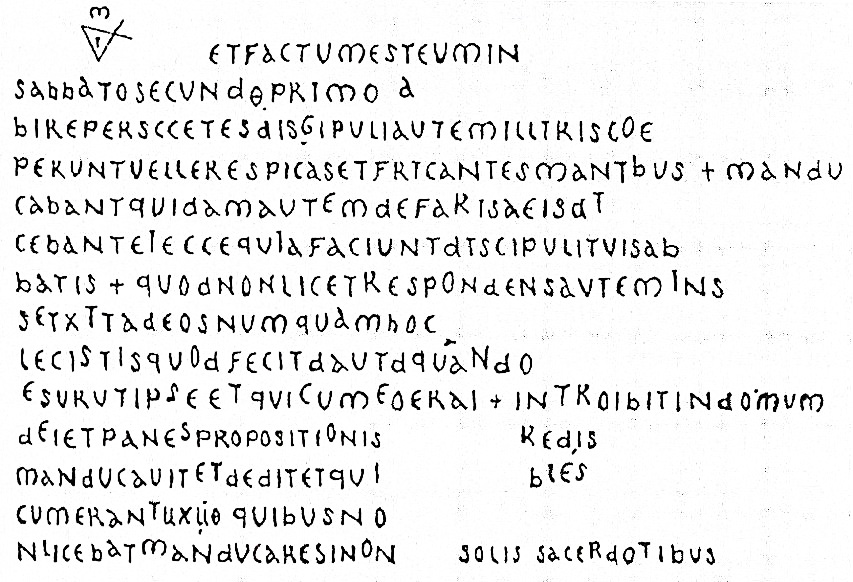 ETFACTUMESTEUMIN
SABBATOSECUNDOPRIMO A
BIREPERSCCETESDISGIPULIAUTEMILLIRISCOE
PERUNTUELLERESPICASETFRICANTESMANIBUS + MANDU
CABANTQUIDAMAUTEMDEFARISAEISDI
CEBANTEIECCEQUIAFACIUNTDISCIPULITUISAB
BATIS + QUODNONLICETRESPONDENSAUTEMINS
SETXTTADEOSNUMQUAMHOC
LECISTISQUODFECITDAUIDQUANDO
ESURUTIPSEETQUICUMEOERAI + INTROIBITINDOMUM
DEIETPANESPROPOSITIONIS REDIS
MANDUCAUITETDEDITETQUI BLES
CUMERANTUXIIΘ QUIBUSNO
NLICEBATMANDUCARESINON SOLIS SACERDOTIBUS